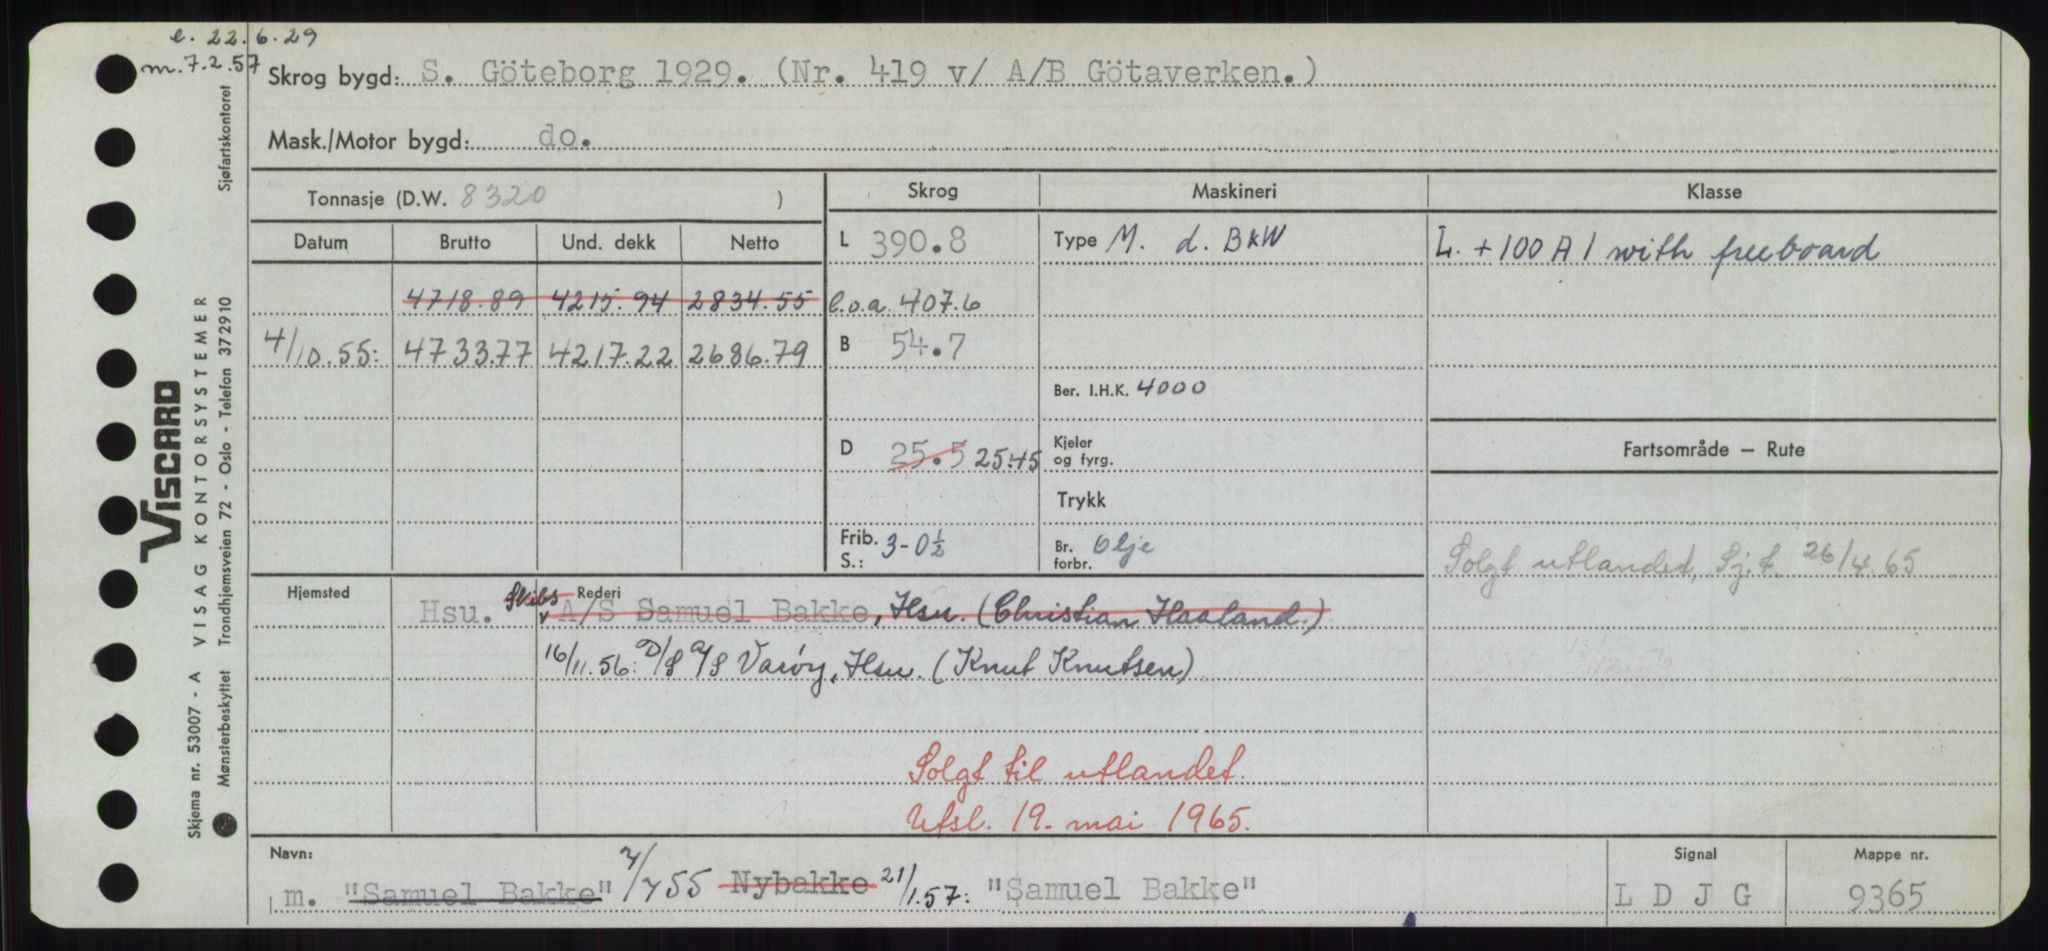 e. 22.6.29
m. 7.2.57
Skrog bygd: S. Göteborg 1929. (Nr. 419 v/ A/B Götaverken.)
Mask./Motor bygd: do.
Tonnasje (D.W. 8320 )
Skrog Maskineri Klasse
Datum Brutto Und. dekk Netto
L 390.8 Type M. d. B&W L. +100 A 1 with freeboard
4718.89 4215.94 2834.55 l.o.a. 407.6
4/10.55: 4733.77 4217.22 2686.79 B 54.7
Ber. I.H.K. 4000
D 25.5 25.45 Kjeler og fyrg.
Fartsområde — Rute
Trykk
Frib. S.: 3-0½ Br. forbr. Olje
Solgt utlandet, Sj.f. 26/4.65
Hjemsted Rederi
Hsu. Skibs A/S Samuel Bakke, Hsu. (Christian Haaland.)
16/11.56: D/S A/S Varøy, Hsu. (Knut Knutsen)
Solgt til utlandet.
Utsl. 19. mai 1965.
Navn: Signal Mappe nr.
m. "Samuel Bakke" 7/7 55 Nybakke 21/1.57: "Samuel Bakke" L D J G 9365
VISCARD
VISAG KONTORSYSTEMER
Skjema nr. 53007 - A
Mønsterbeskyttet Trondhjemsveien 72 - Oslo - Telefon 372910 Sjøfartskontoret